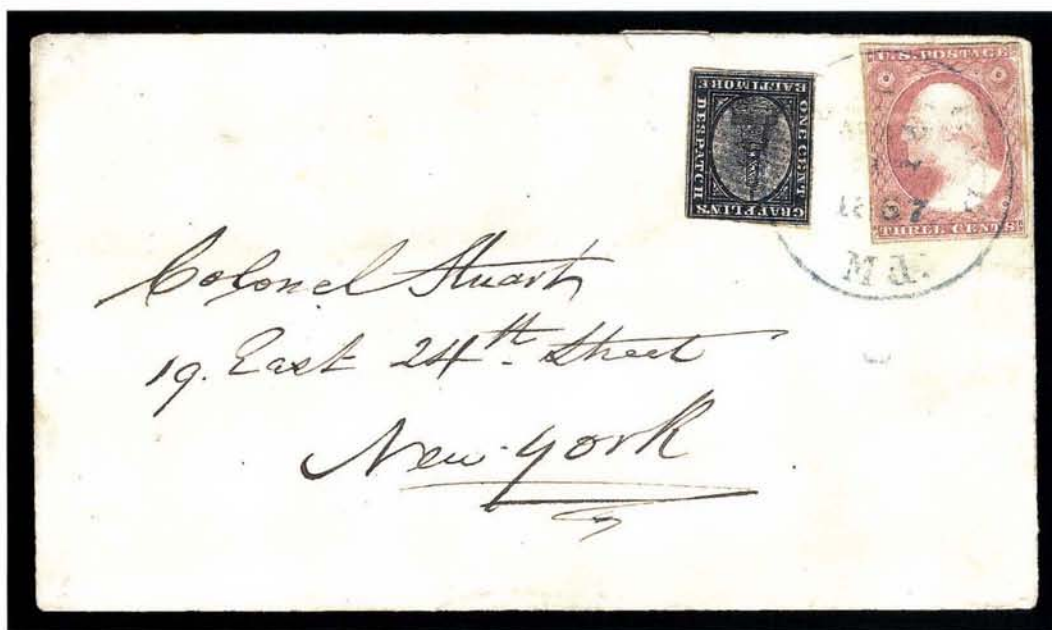 U.S. POSTAGE
THREE CENTS
ONE CENT
GRAFFLIN'S
BALTIMORE
DESPATCH
1857
Md.
Colonel Stuart
19. East 24th. Street
New-york